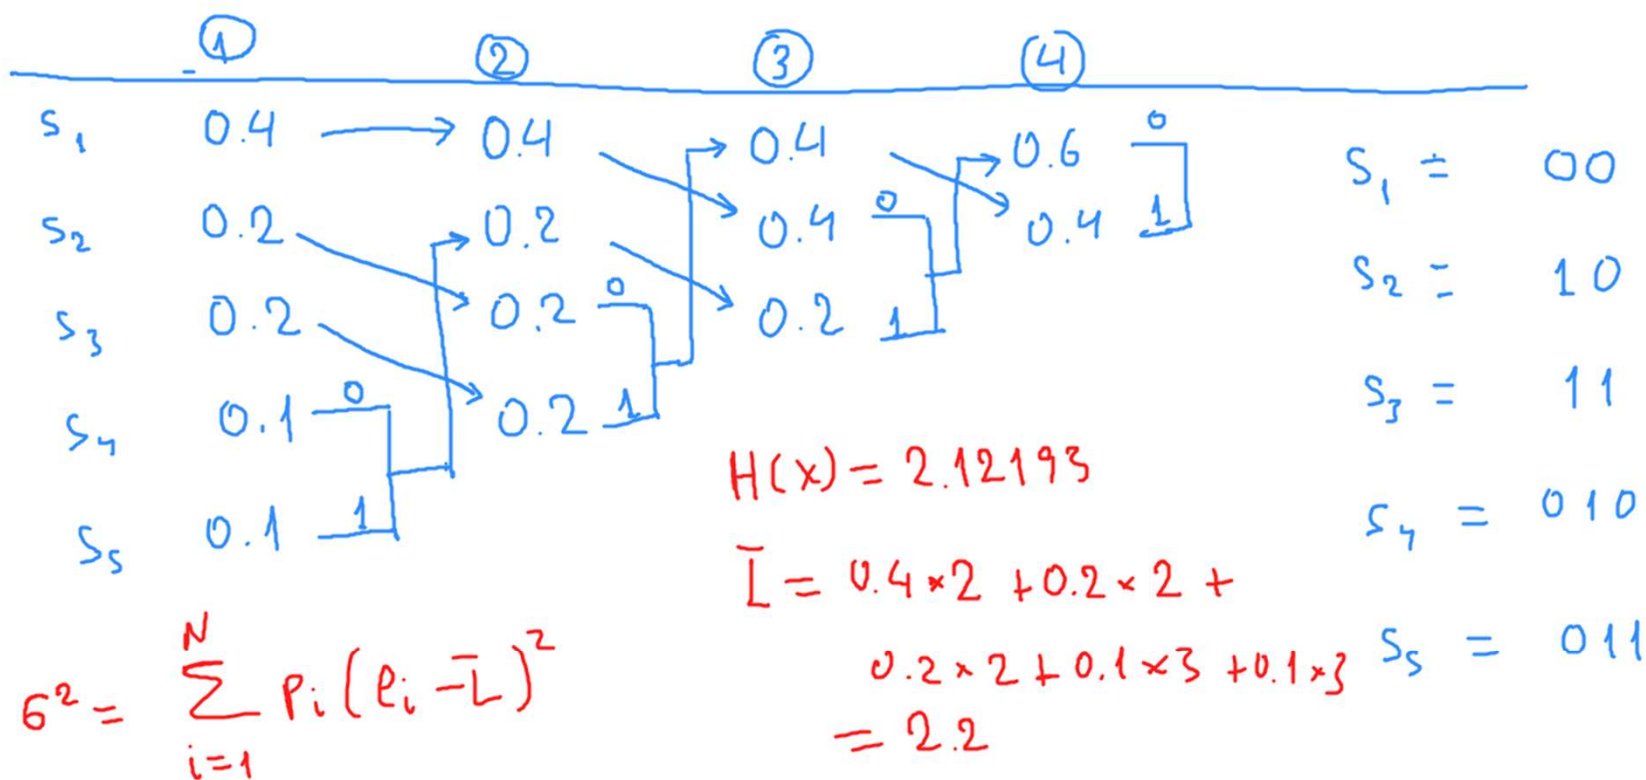 ① ② ③ ④
S₁ 0.4 → 0.4 0.4 0.6 0
S₂ 0.2 0.2 0.4 0 0.4 1
S₃ 0.2 0.2 0 0.2 1
S₄ 0.1 0 0.2 1
S₅ 0.1 1
S₁ = 00
S₂ = 10
S₃ = 11
S₄ = 010
S₅ = 011
H(x) = 2.12193
L̄ = 0.4×2 + 0.2×2 +
0.2×2 + 0.1×3 + 0.1×3
= 2.2
σ² = ∑ᵢ₌₁ᴺ Pᵢ(ℓᵢ - L̄)²